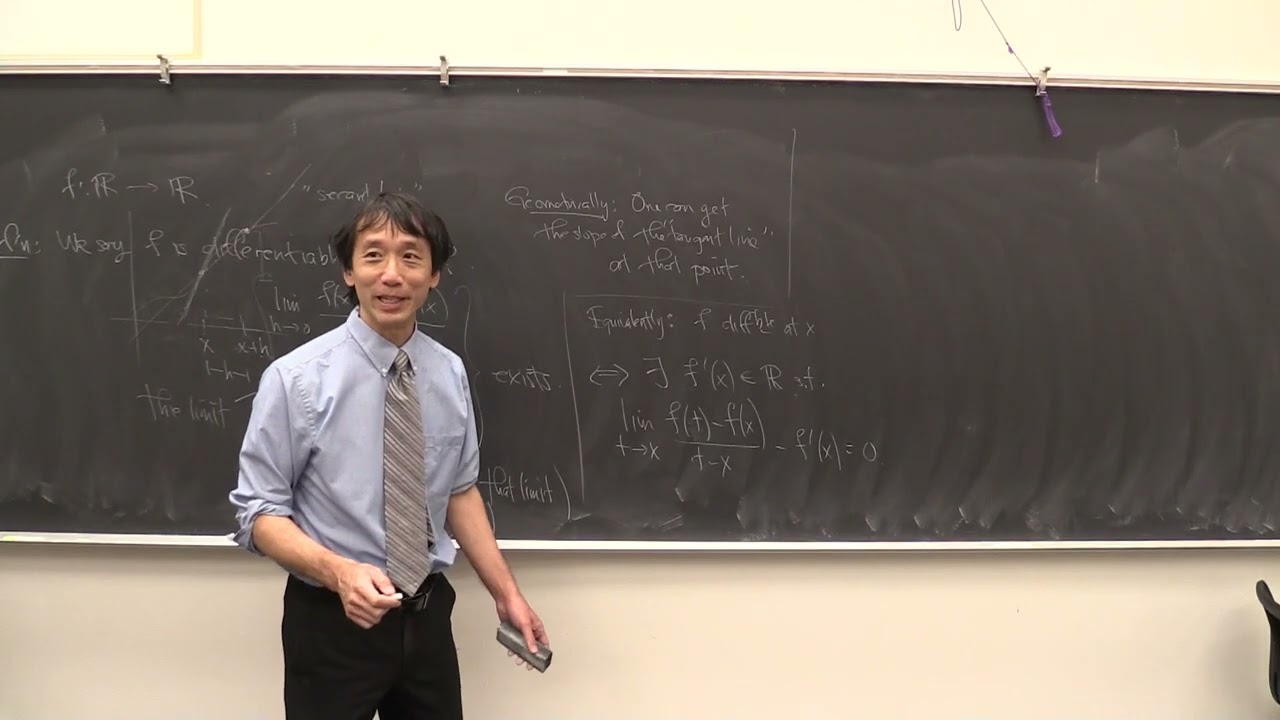 f: ℝ → ℝ.
"secant
f'n: We say f is differentiab
lim f(x
h→0
x x+h
⊢h⊣
the limit
exists.
that limit)
Geometrically: One can get
the slope of the "tangent line"
at that point.
Equivalently: f diff'ble at x
⇔ ∃ f'(x) ∈ ℝ s.t.
lim f(t) – f(x)
t→x t-x – f'(x) = 0.